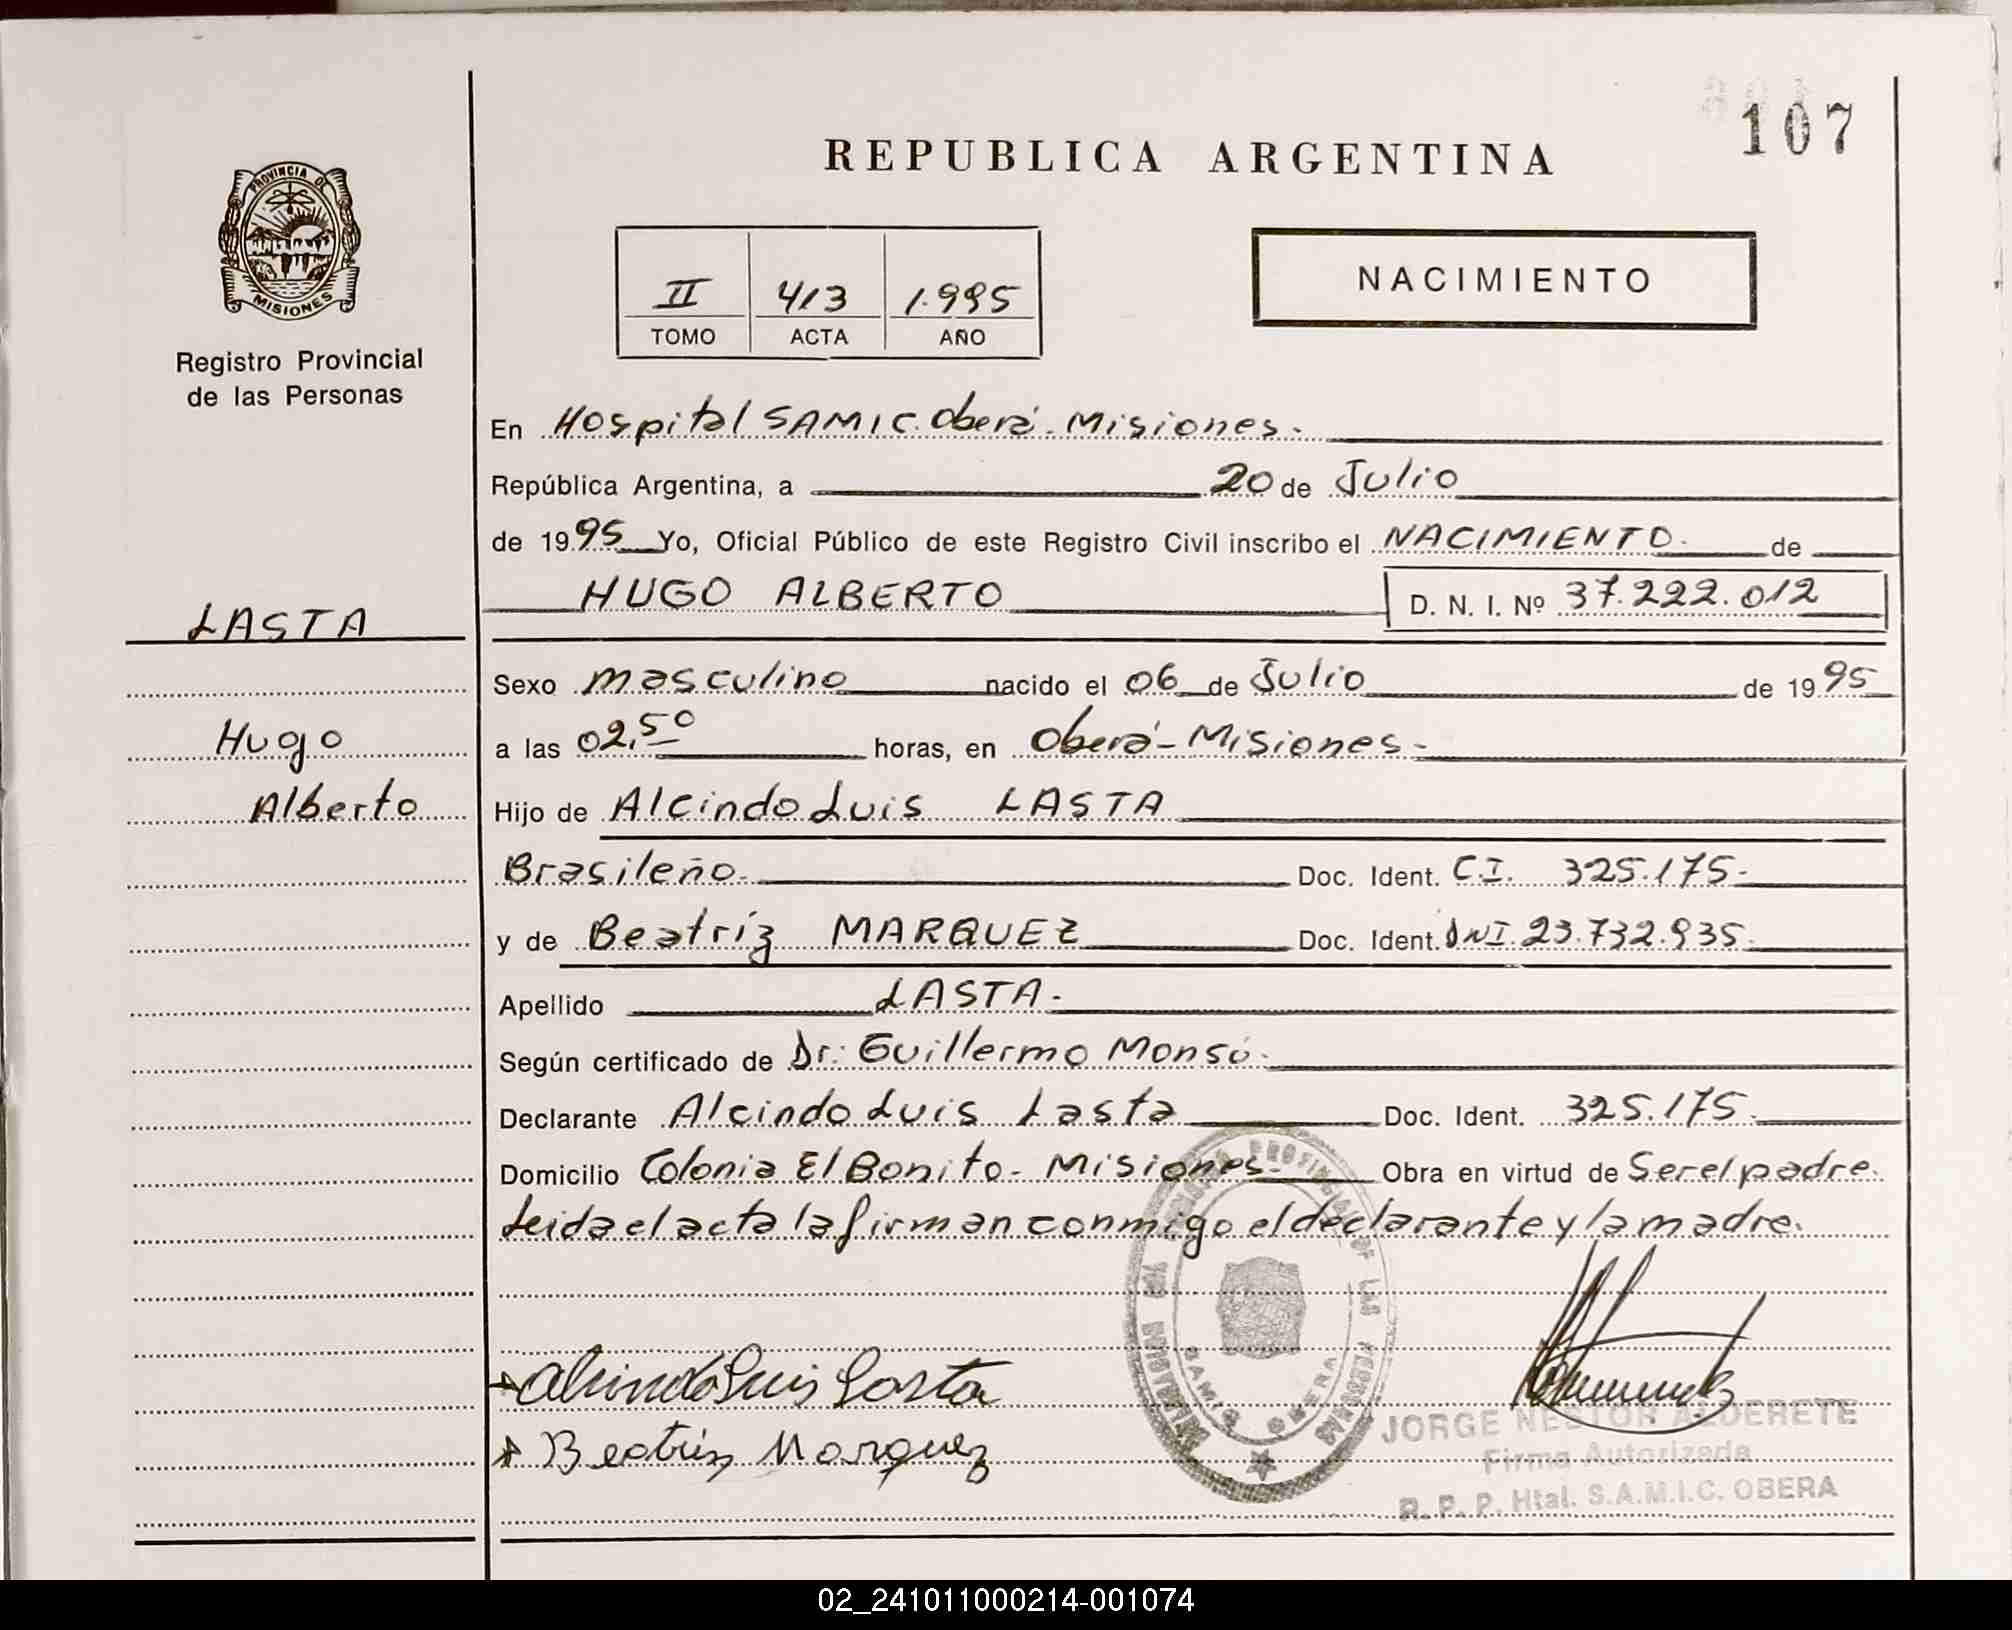 107
REPUBLICA ARGENTINA
PROVINCIA DE
MISIONES
Registro Provincial
de las Personas
II 413 1.995
TOMO ACTA AÑO
NACIMIENTO
En Hospital SAMIC. Oberá. Misiones.
República Argentina, a 20 de Julio
de 1995 Yo, Oficial Público de este Registro Civil inscribo el NACIMIENTO. de
HUGO ALBERTO D. N. I. Nº 37.222.012
LASTA
Sexo masculino nacido el 06 de Julio de 1995
Hugo
a las 02,50 horas, en Oberá - Misiones.-
Alberto
Hijo de Alcindo Luis LASTA
Brasileño. Doc. Ident. C.I. 325.175.-
y de Beatríz MARQUEZ Doc. Ident. DNI. 23.732.935.
Apellido LASTA.
Según certificado de Dr. Guillermo Monsó.
Declarante Alcindo Luis Lasta Doc. Ident. 325.175.
Domicilio Colonia El Bonito - Misiones.- Obra en virtud de Ser el padre.
Leida el acta la firman conmigo el declarante y la madre.
Alcindo Luis Lasta
Beatriz Marquez
PROVINCIAL DE LAS PERSONAS
SAMIC OBERA
JORGE NESTOR ALDERETE
Firma Autorizada
R. P. P. Htal. S.A.M.I.C. OBERA
02_241011000214-001074